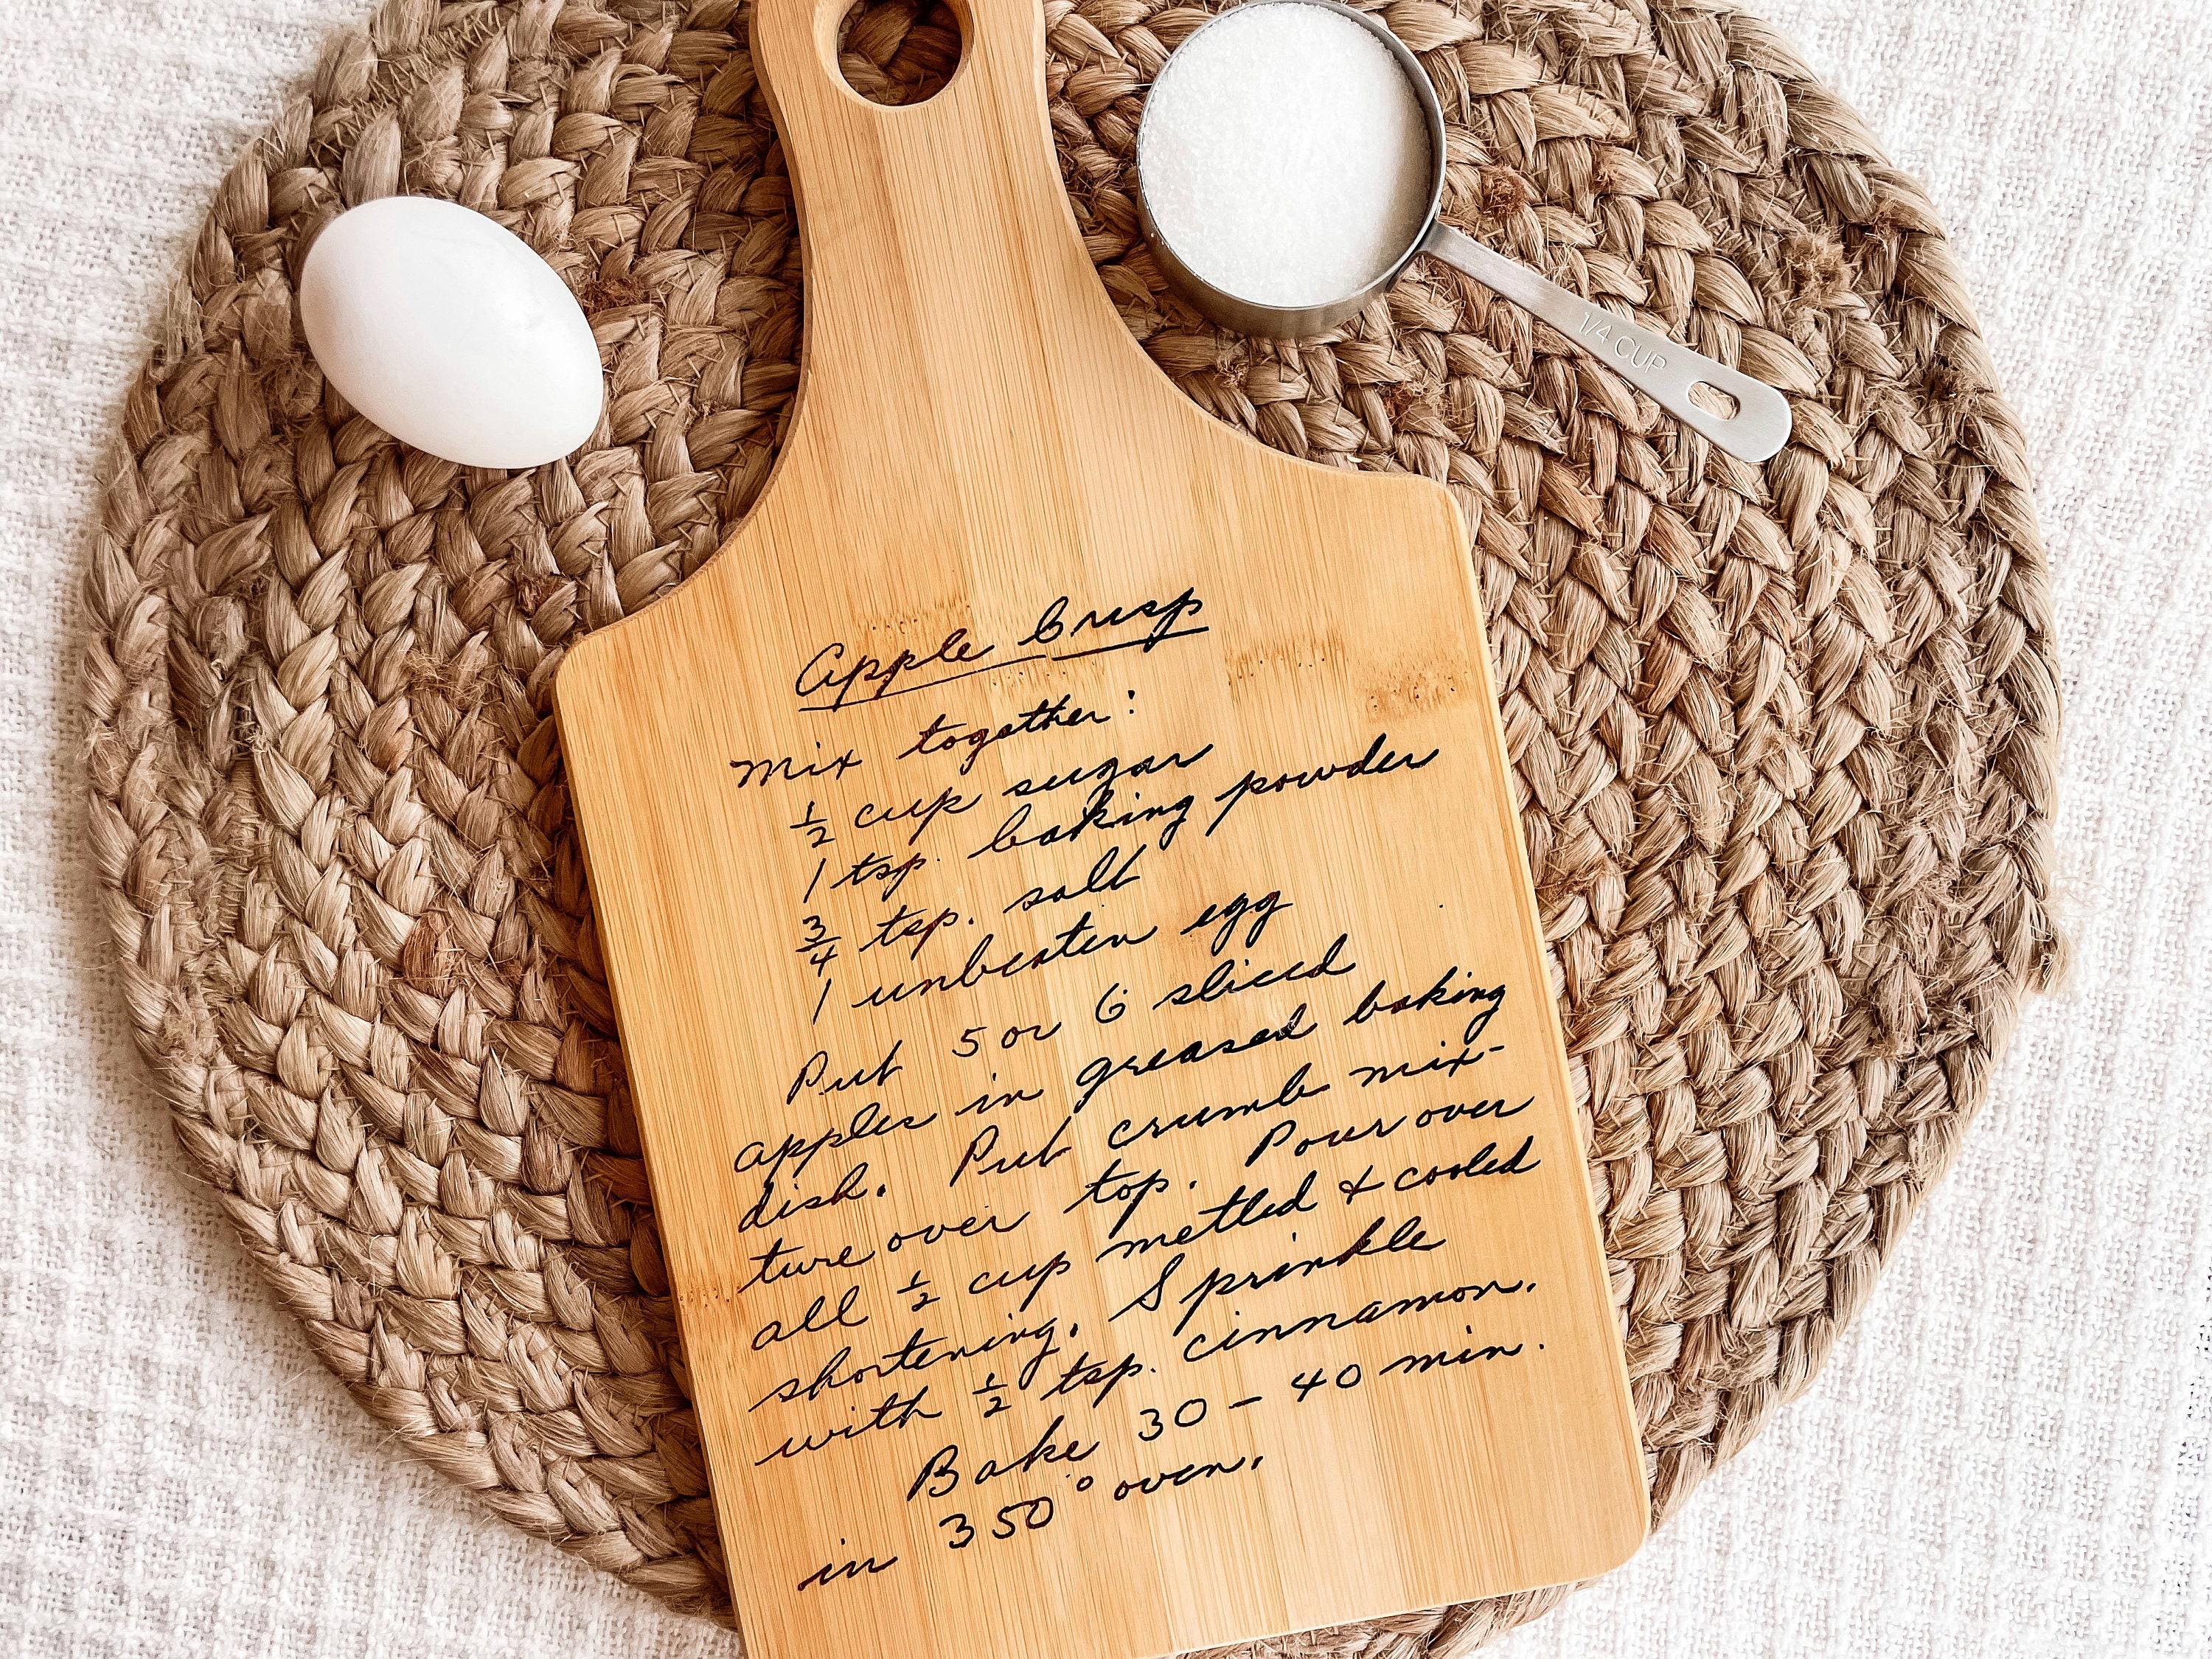 1/4 CUP
Apple Crisp
Mix together:
1/2 cup sugar
1 tsp. baking powder
3/4 tsp. salt
1 unbeaten egg
Put 5 or 6 sliced
apples in greased baking
dish. Put crumb mix-
ture over top. Pour over
all 1/2 cup metled & cooled
shortening. Sprinkle
with 1/2 tsp. cinnamon.
Bake 30 - 40 min.
in 350° oven.